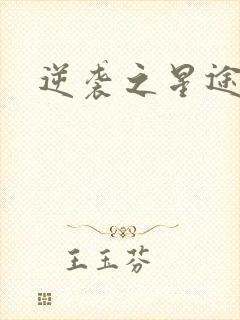 逆袭之星途
王玉芬